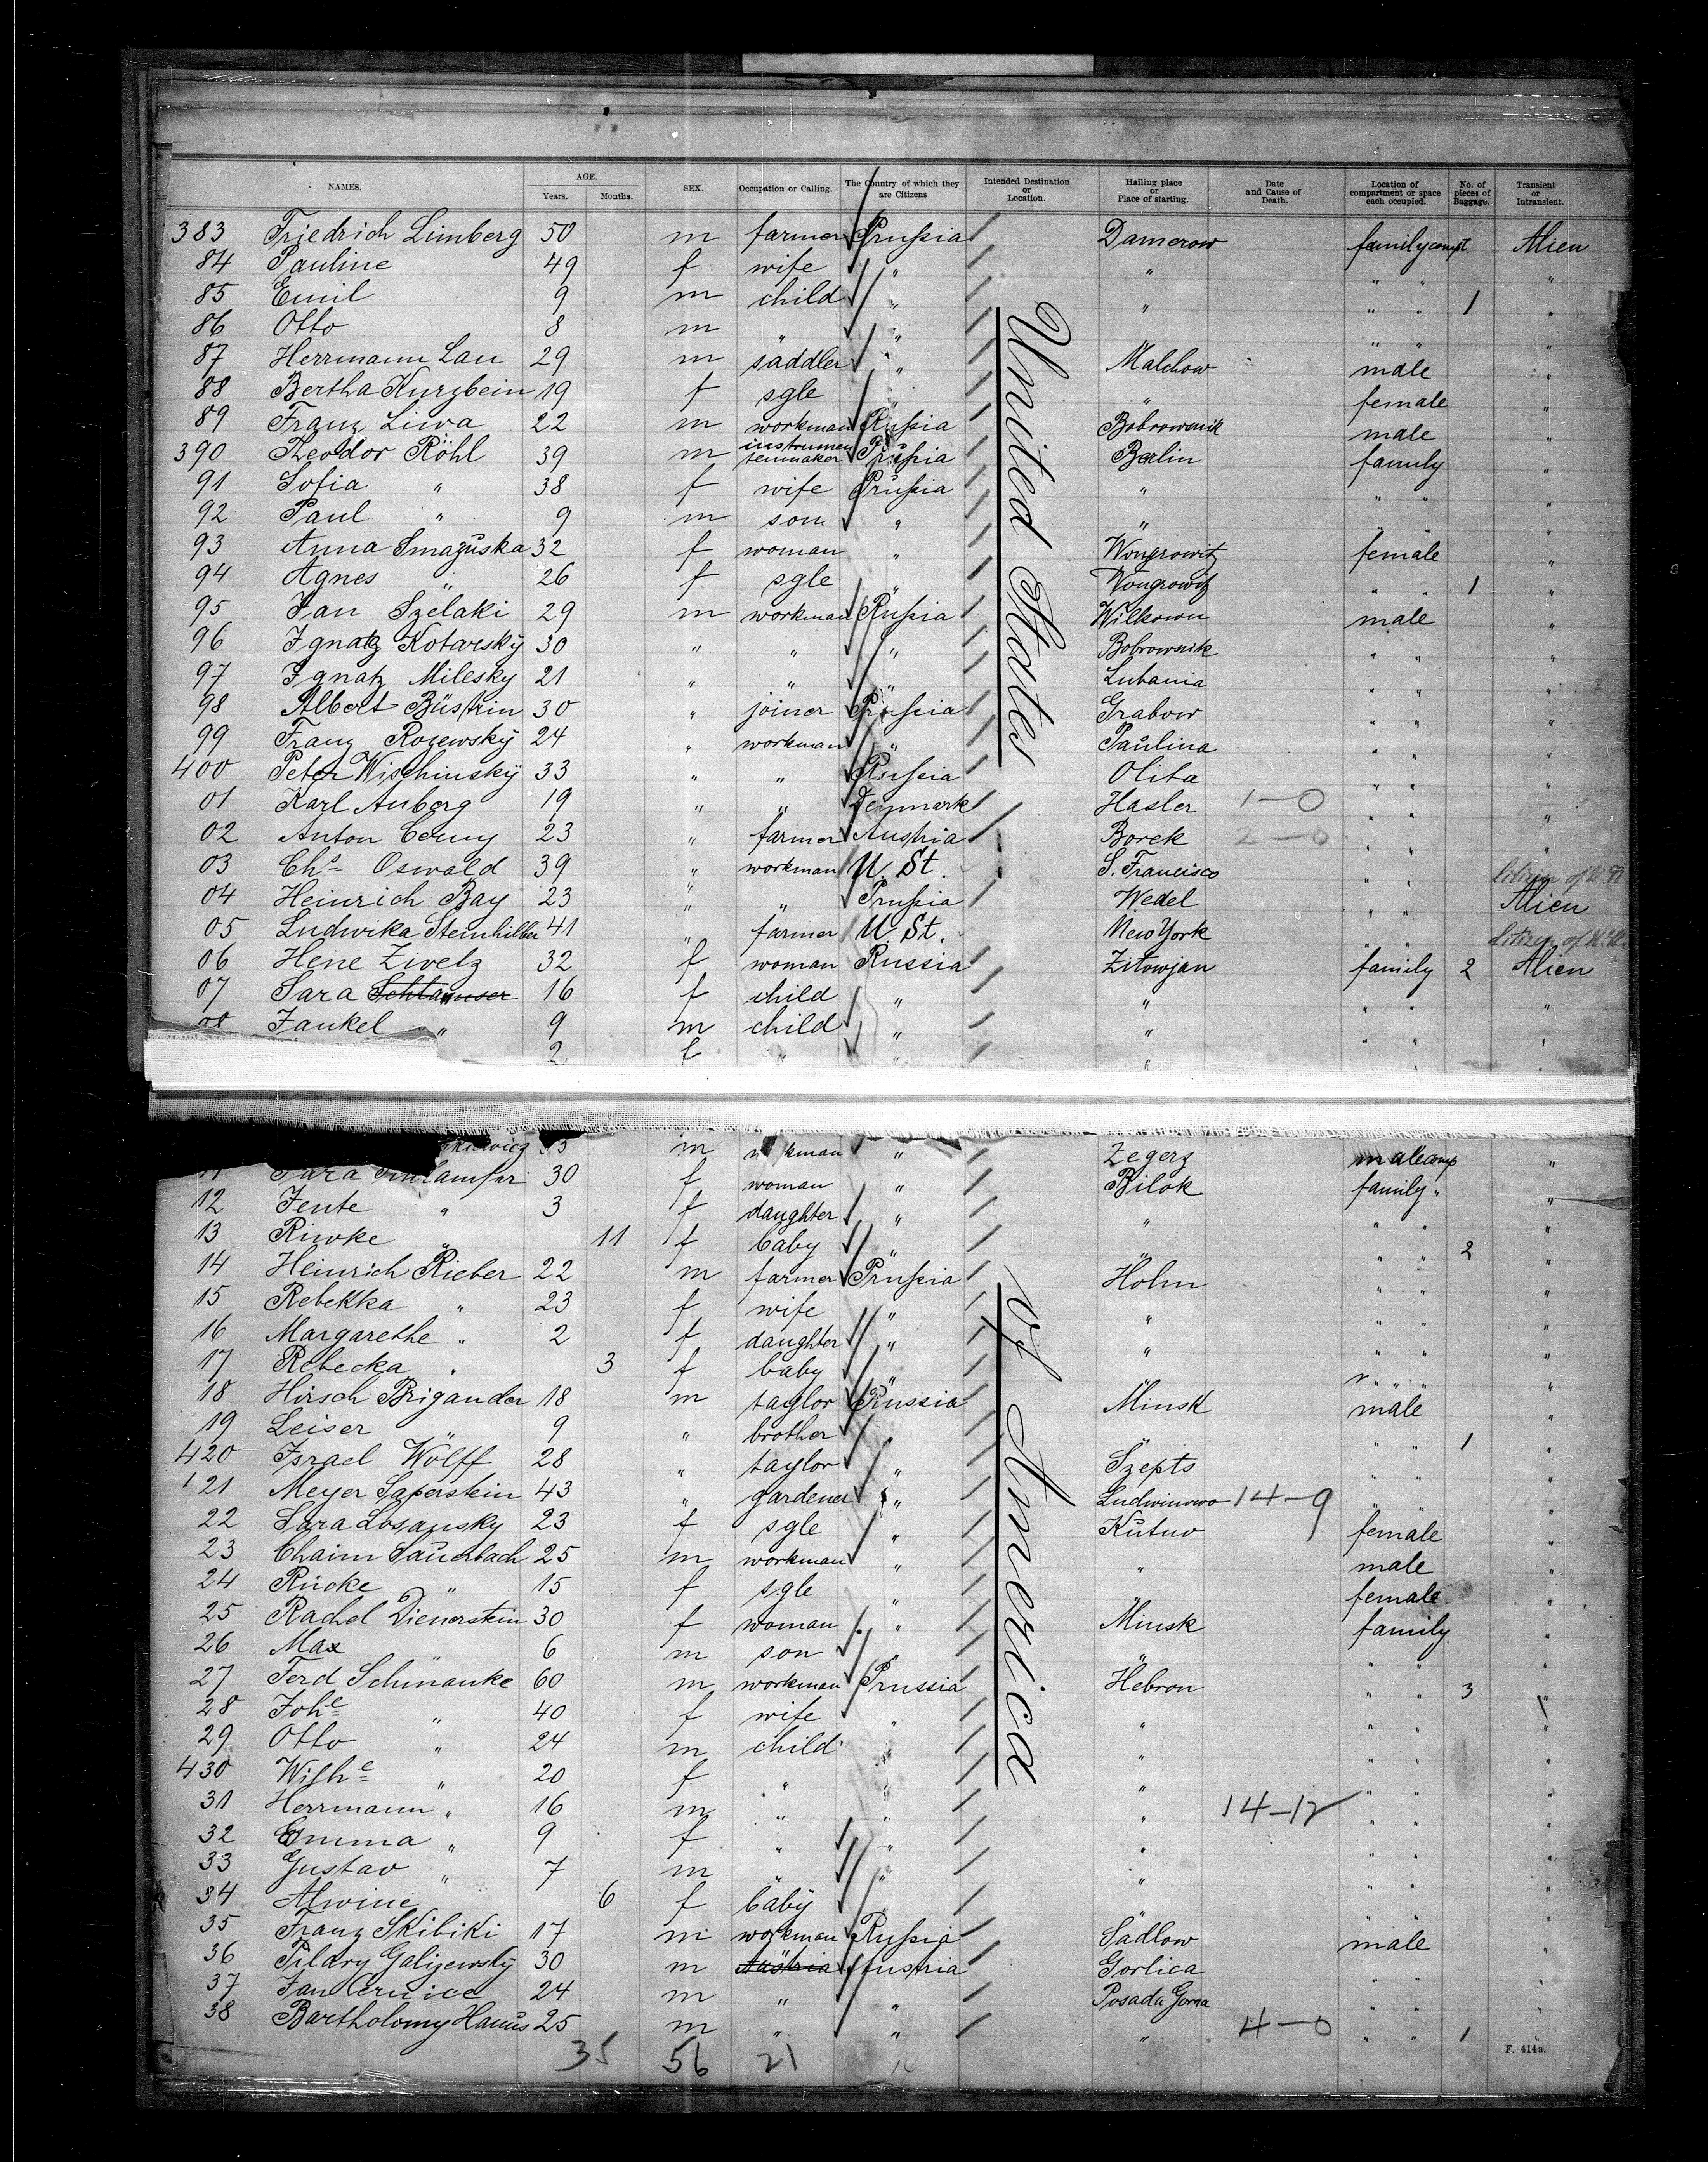 NAMES. AGE. Years. Months. SEX. Occupation or Calling. The Country of which they are Citizens Intended Destination or Location. Hailing place or Place of starting. Date and Cause of Death. Location of compartment or space each occupied. No. of pieces of Baggage. Transient or Intransient.
383 Friedrich Limberg 50 m farmer Prußia Damerow family compt Alien
84 Pauline 49 f wife " " " " "
85 Emil 9 m child " " " " 1 "
86 Otto 8 m " " " " "
87 Herrmann Lau 29 m saddler " Malchow male "
88 Bertha Kurzbein 19 f sgle " " female "
89 Franz Liwa 22 m workman Rußia Bobrownik male "
390 Theodor Röhl 39 m instrumentenmaker Prußia Berlin family "
91 Sofia " 38 f wife Prußia " " " "
92 Paul " 9 m son " " " " "
93 Anna Smazuska 32 f woman " Wongrowitz female "
94 Agnes " 26 f sgle " Wongrowitz " " 1 "
95 Jan Szelaki 29 m workman Rußia Wilkown male "
96 Ignatz Kotarsky 30 " " " Bobrownik " " "
97 Ignatz Milesky 21 " " " Lubania " " "
98 Albert Büstrin 30 " joiner Prußia Grabow " " "
99 Franz Rozewsky 24 " workman " Paulina " " "
400 Peter Wischinsky 33 " " Rußia Olita " " "
01 Karl Auberg 19 " " Denmark Hasler 1-0 " " "
02 Anton Cerny 23 " farmer Austria Borek 2-0 " " "
03 Chs Oswald 39 " workman U. St. S. Francisco " " Citizen of U.St.
04 Heinrich Bay 23 " " Prußia Wedel " " Alien
05 Ludwika Steinhilber 41 " farmer U. St. New York " " Citizen of U.St.
06 Hene Zivelz 32 f woman Russia Zitowjan family 2 Alien
07 Sara 16 f child " " " " "
08 Jankel " 9 m child " " " " "
2 f " " " " " "
United States
m workman " Zegerz male comp "
11 Sara 30 f woman " Bilok family " "
12 Jente " 3 f daughter " " " " "
13 Riwke " 11 f baby " " " " 2 "
14 Heinrich Rieber 22 m farmer Prußia Holm " " "
15 Rebekka " 23 f wife " " " " "
16 Margarethe " 2 f daughter " " " " "
17 Rebecka " 3 f baby " " " " "
18 Hirsch Brigander 18 m taylor Russia Minsk male "
19 Leiser " 9 " brother " " " " 1 "
420 Israel Wolff 28 " taylor " Szepts " " "
21 Meyer Saperstein 43 " gardener " Ludwinowo 14-9 " " "
22 Sara Losansky 23 f sgle " Kutno female "
23 Chaim Sauerbach 25 m workman " " male "
24 Rücke " 15 f sgle " female "
25 Rachel Dienerstein 30 f woman " Minsk family "
26 Max " 6 m son " " " " "
27 Ferd Schmanke 60 m workman Prussia Hebron " " 3 "
28 Johe " 40 f wife " " " " "
29 Otto " 24 m child " " " " "
430 Wilhe " 20 f " " " " " "
31 Herrmann " 16 m " " " 14-12 " " "
32 Emma " 9 f " " " " " "
33 Gustav " 7 m " " " " " "
34 Alwine 6 f baby " " " "
35 Franz Skibiki 17 m workman Rußia Sadlow male "
36 Pilary Galizewsky 30 m Austria Austria Gorlica " " "
37 Jan Cernice 24 m " " Posada Gorna " " "
38 Bartholomy Hanus 25 m " " " 4-0 " " 1 "
of America
35 56 21 14
F. 414a.